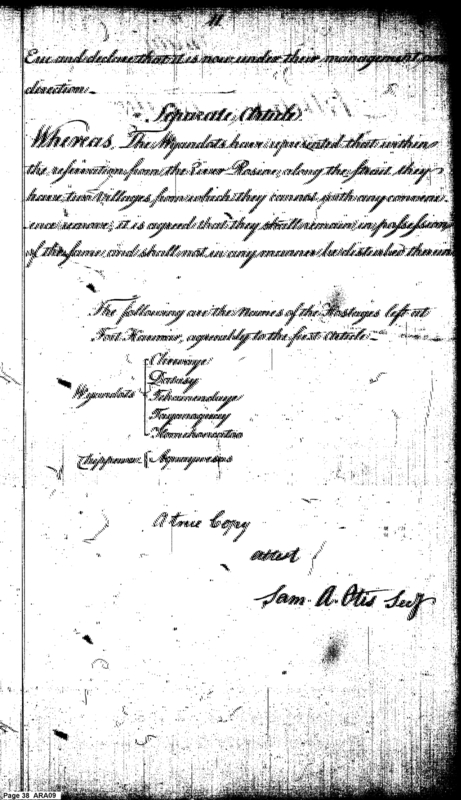 11
Erie and declare that it is now under their management and
direction –
Separate Article
Whereas, The Wyandots have represented that within
the reservation from the River Rosine, along the Strait, they
have two Villages from which they cannot with any conveni
ence remove; it is agreed that they shall remain in possession
of the same, and shall not in any manner be disturbed therein
The following are the Names of the Hostages left at
Fort Harmar, agreeably to the first Article –
Wyandots
Dotasy
Chippewa
A true Copy
attest
Sam. A. Otis Secy
Page 38 ARA09